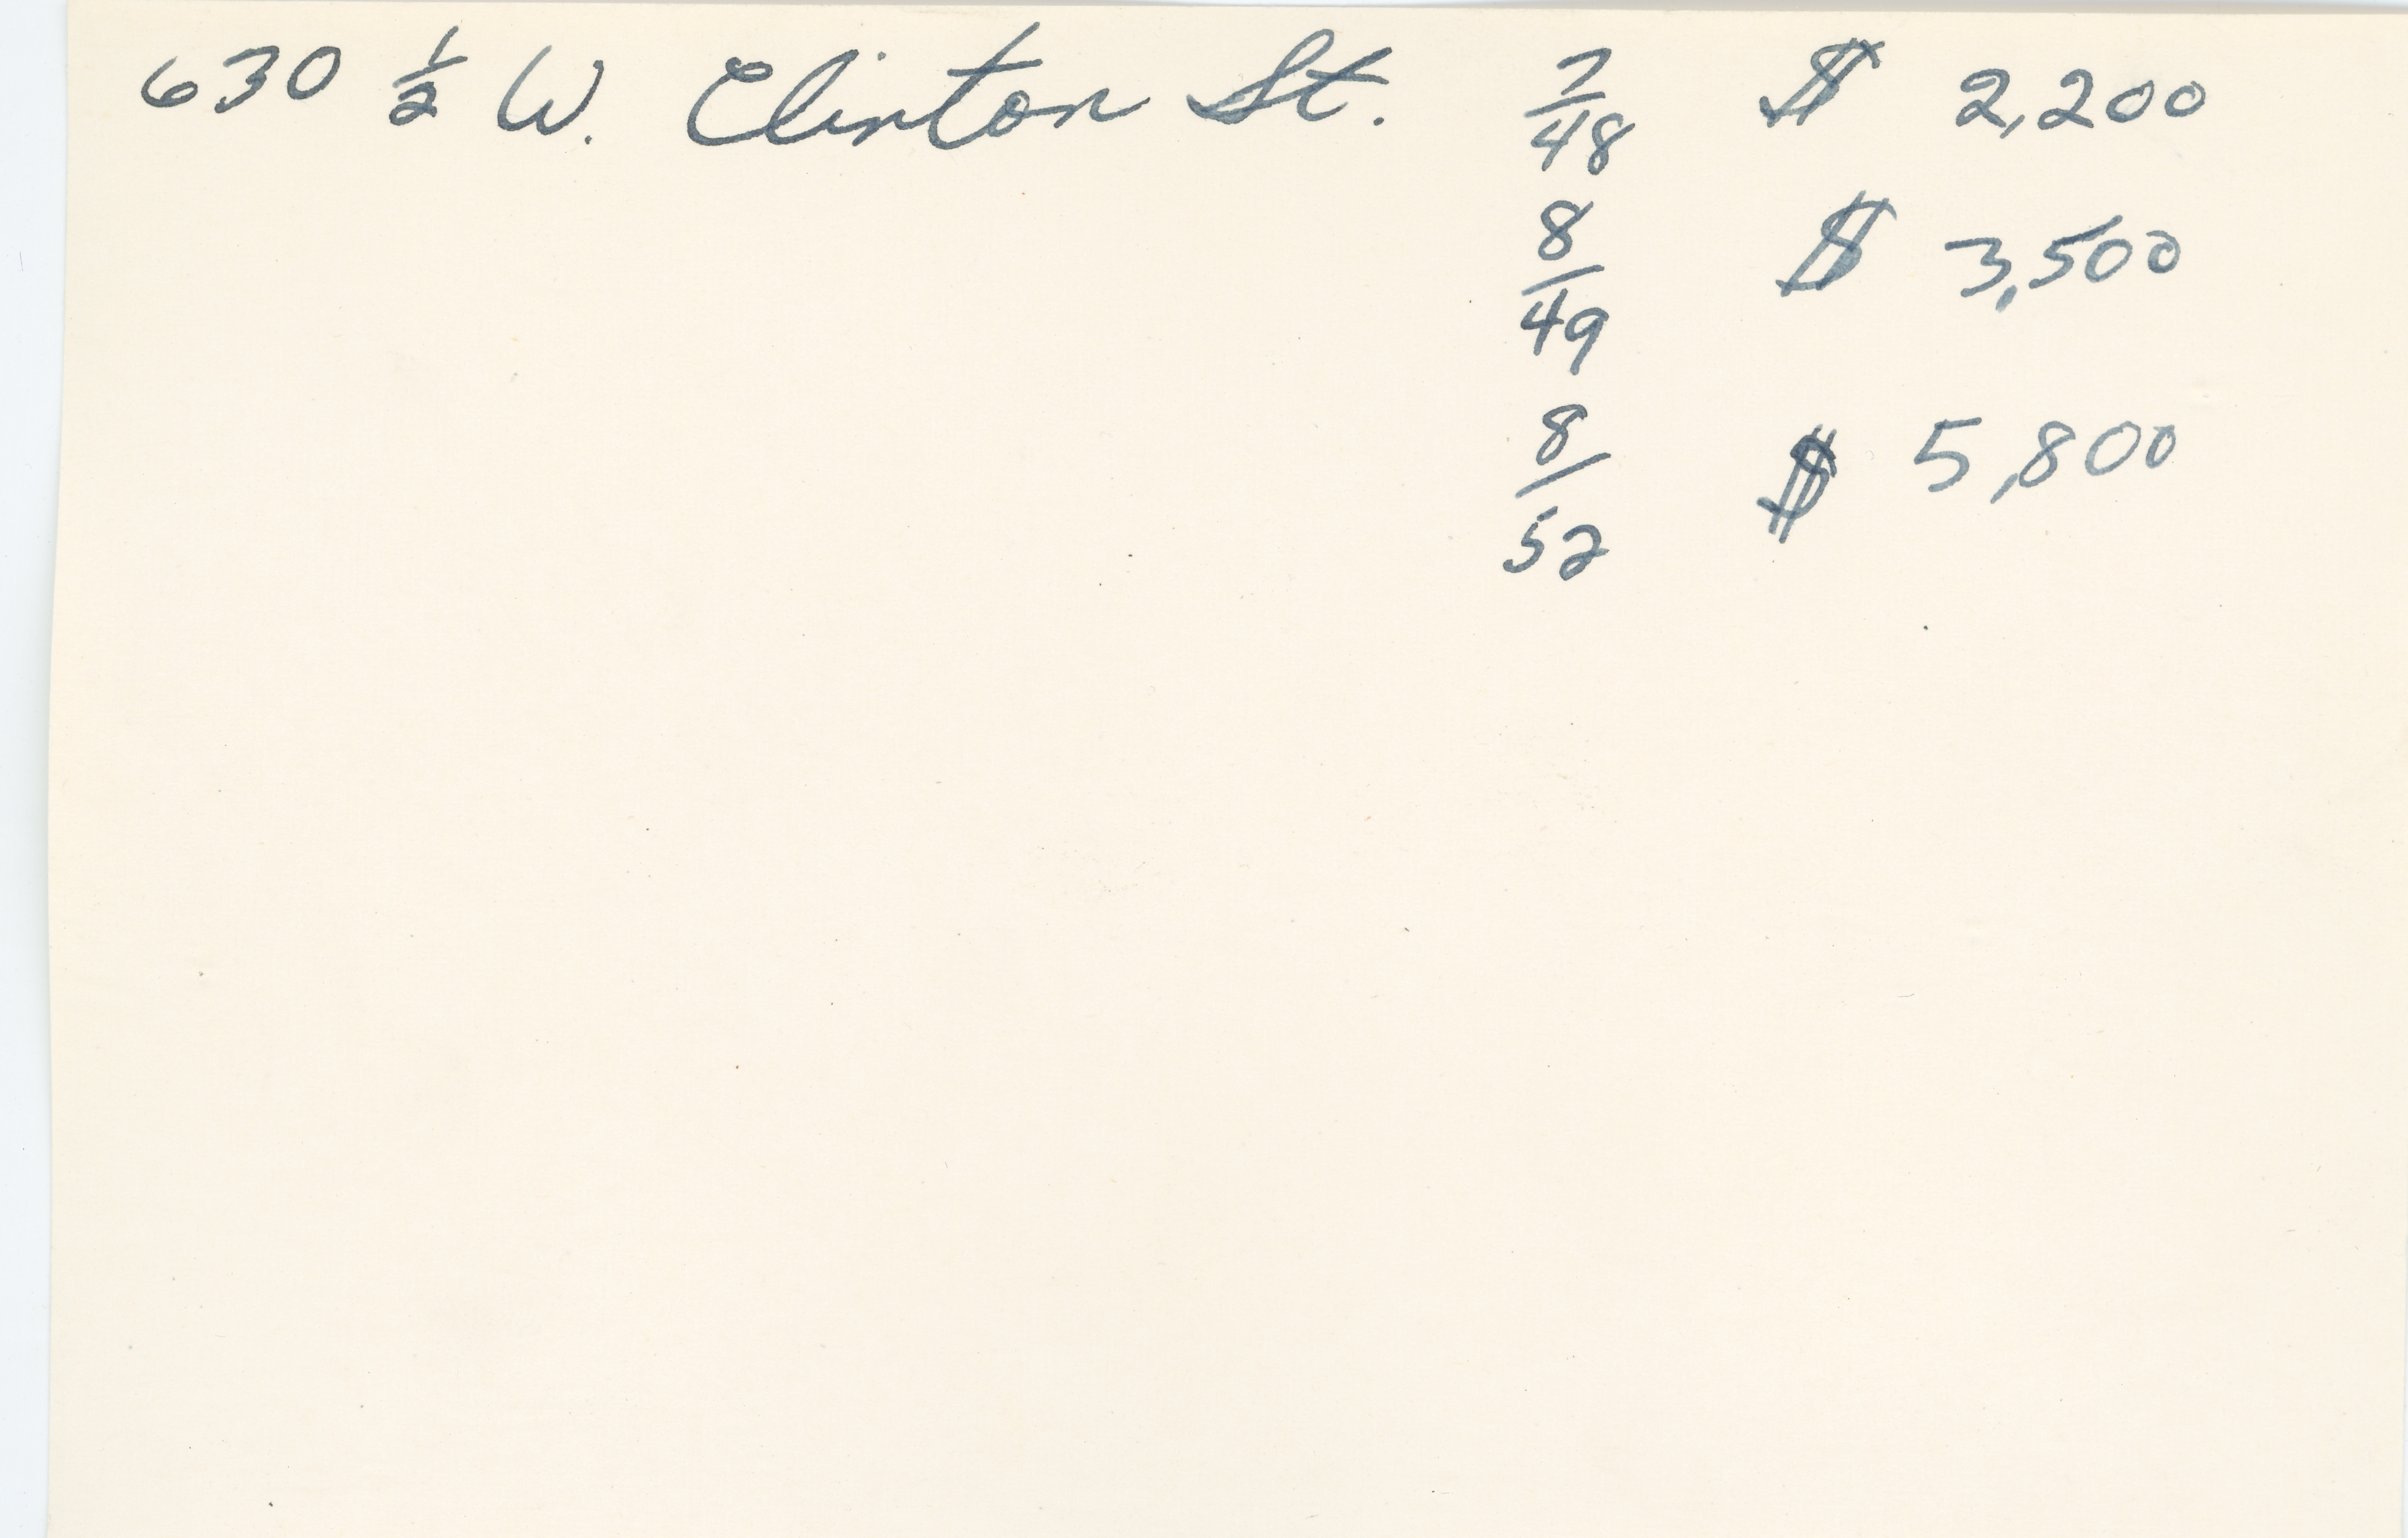 630 ½ W. Clinton St. 7/48 $ 2,200
8/49 $ 3,500
8/52 $ 5,800